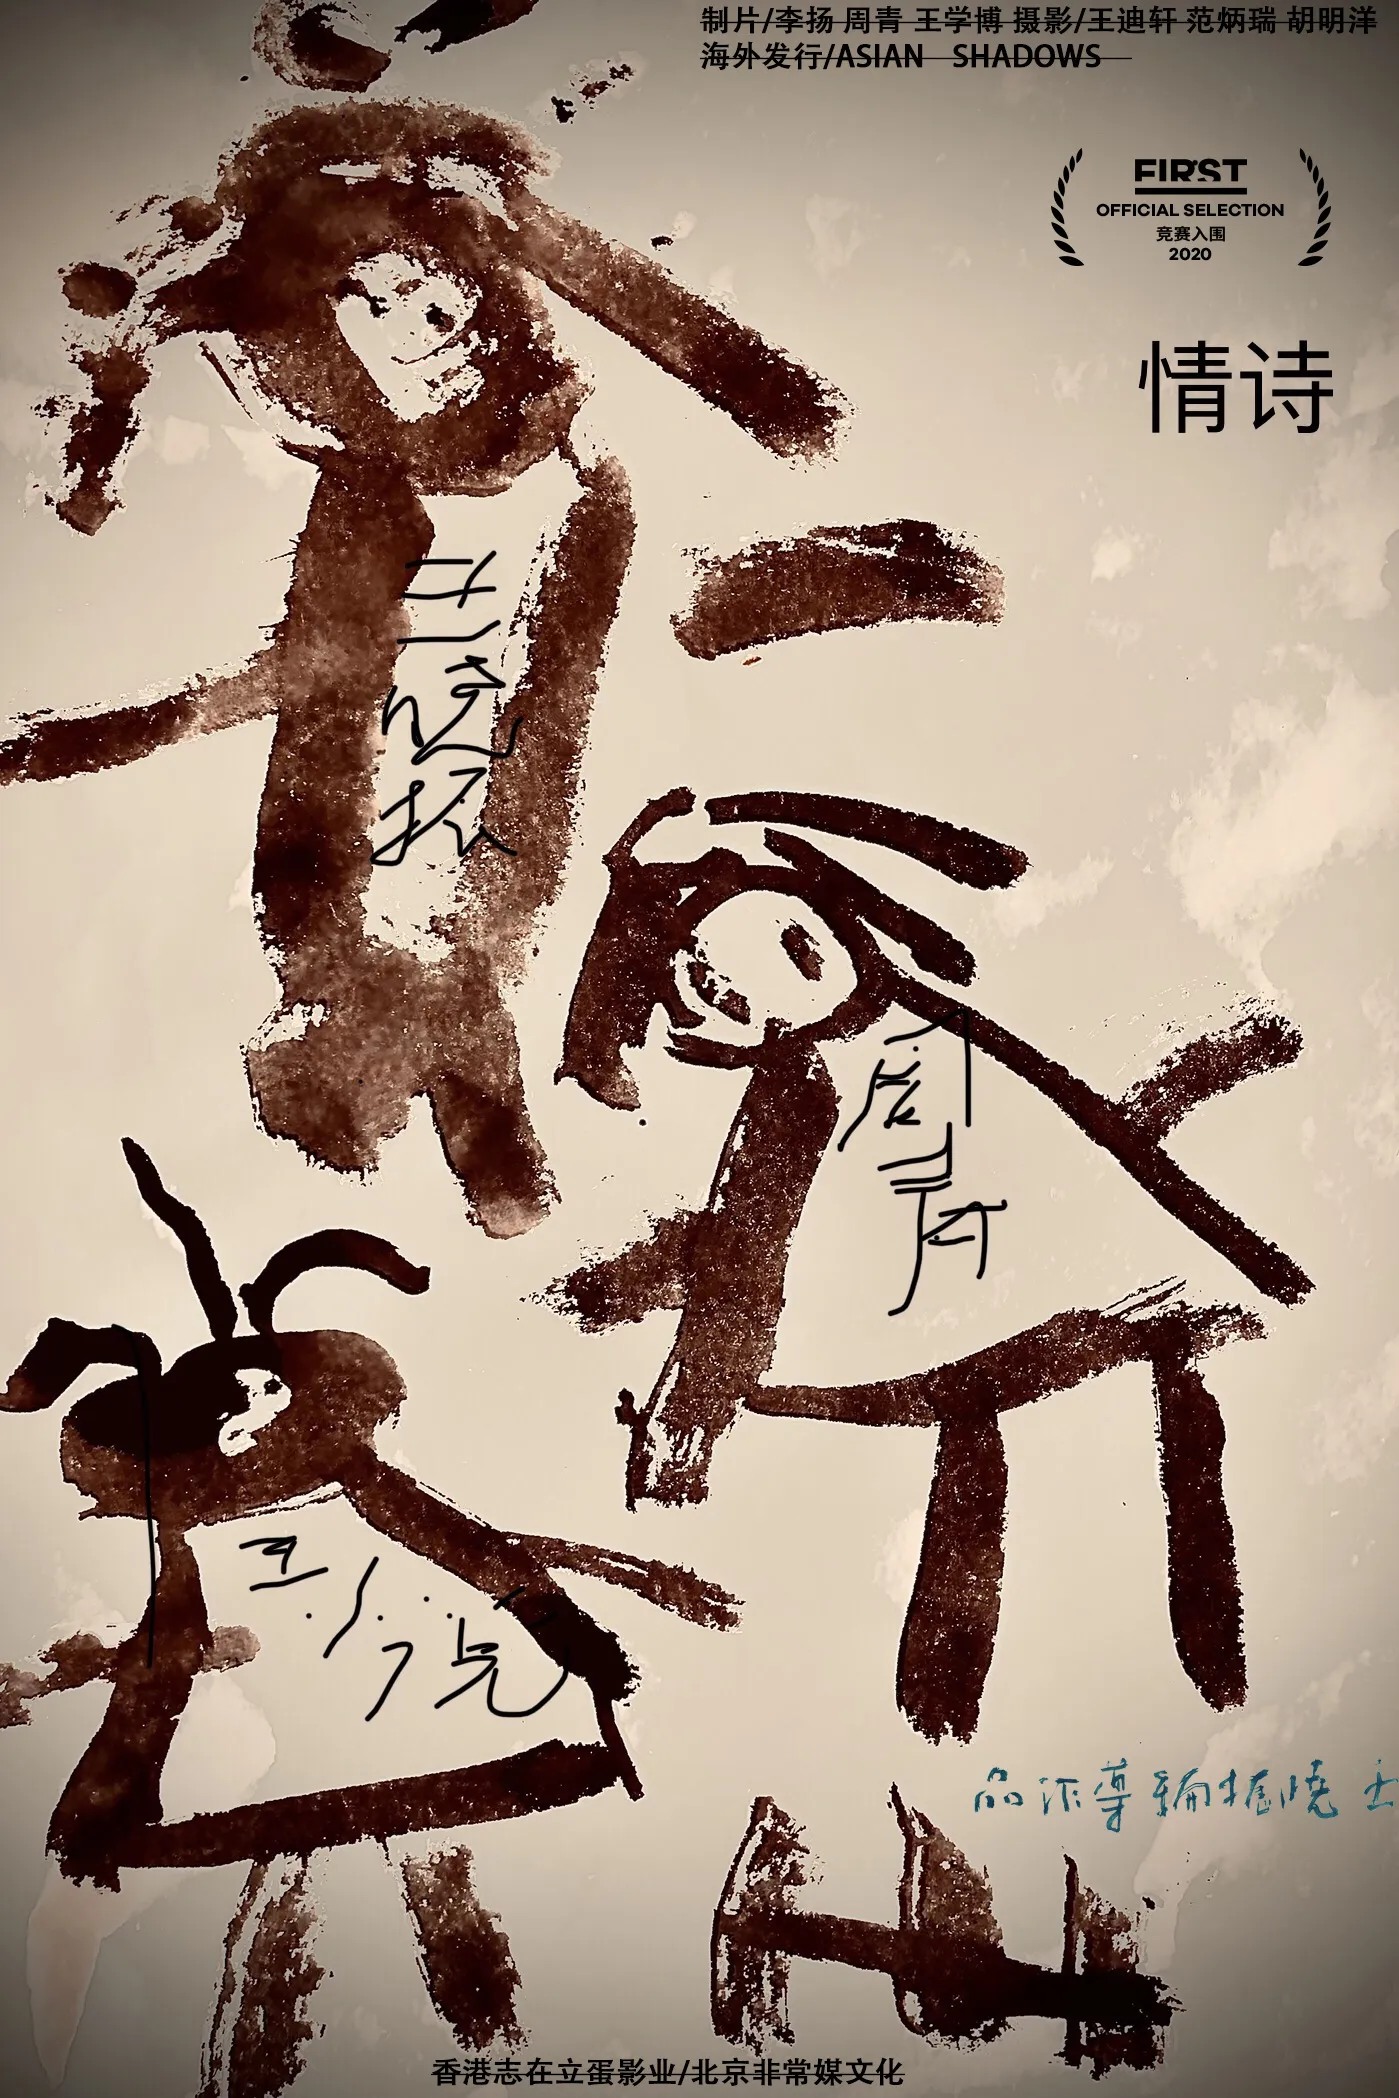 制片/李扬 周青 王学博 摄影/王迪轩 范炳瑞 胡明洋
海外发行/ASIAN SHADOWS
FIRST
OFFICIAL SELECTION
竞赛入围
2020
情诗
王晓振
周青
品作導編振曉王
香港志在立蛋影业/北京非常媒文化